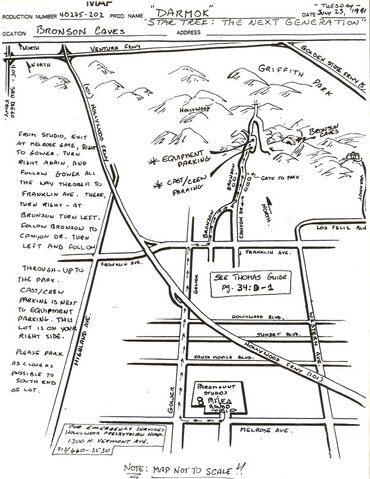 MAP
PRODUCTION NUMBER 40275-202 PROD. NAME "DARMOK"
"STAR TREK: THE NEXT GENERATION"
DATE - TUESDAY - JULY 23, 1991
LOCATION BRONSON CAVES ADDRESS
NORTH
VENTURA FRWY
NORTH
GOLDEN STATE FRWY
GRIFFITH PARK
HOLLYWOOD
(101) HOLLYWOOD FRWY
BRONSON CAVES
* EQUIPMENT PARKING
* CAST/CREW PARKING
GATE TO PARK
BRONSON
CANYON DR.
BRONSON
NORTH
LOS FELIZ BLVD
FROM STUDIO, EXIT
AT MELROSE GATE, RIGHT
TO GOWER. TURN
RIGHT AGAIN, AND
FOLLOW GOWER ALL
THE WAY THROUGH TO
FRANKLIN AVE. THERE,
TURN RIGHT - AT
BRONSON TURN LEFT.
FOLLOW BRONSON TO
CANYON DR. TURN
LEFT AND FOLLOW
THROUGH - UP TO
THE PARK.
CAST/CREW
PARKING IS NEXT
TO EQUIPMENT
PARKING. THIS
LOT IS ON YOUR
RIGHT SIDE.
PLEASE PARK
AS CLOSE AS
POSSIBLE TO
SOUTH END
OF LOT.
FRANKLIN AVE.
FRANKLIN AVE.
SEE THOMAS GUIDE
PG. 34:D-1
GOWER
HOLLYWOOD BLVD.
SUNSET BLVD.
SANTA MONICA BLVD.
HOLLYWOOD FRWY (101)
WESTERN AVE
HIGHLAND AVE.
PARAMOUNT STUDIOS
8 MILES
ROUND
GOWER
MELROSE AVE.
FOR EMERGENCY SERVICES
HOLLYWOOD PRESBYTERIAN HOSP.
1300 N. VERMONT AVE.
213/660-3530
NOTE: MAP NOT TO SCALE!!